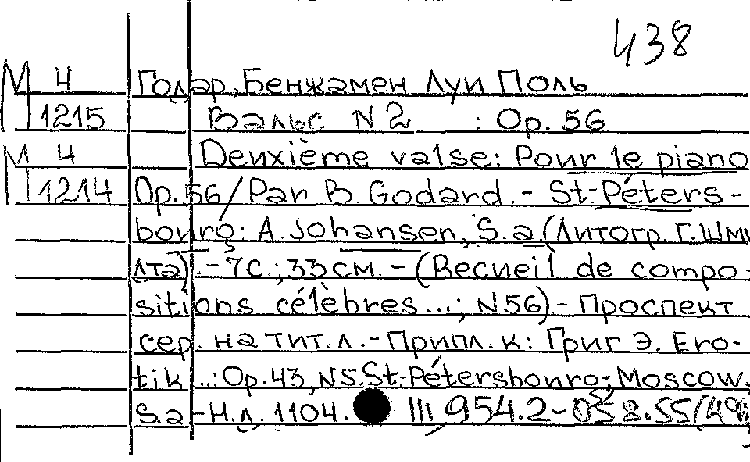 438
М 4 Годар, Бенжамен Луи Поль
1215 Вальс N2 : Op. 56
М 4 Deuxième valse: Pour le piano
1214 Op. 56/Par B. Godard. - St-Péters-
bourg: A. Johansen, S.a (Литогр. Г. Шми
лта). - 7с.; 33 см. - (Recueil de compo-
sitions célèbres...; N56) - Проспект
сер. на тит. л. - Припл. к: Григ Э. Ero-
tik ..: Op. 43, N5. St.-Pétersbourg; Moscow,
S.a - Н.д. 1104. III 954.2-